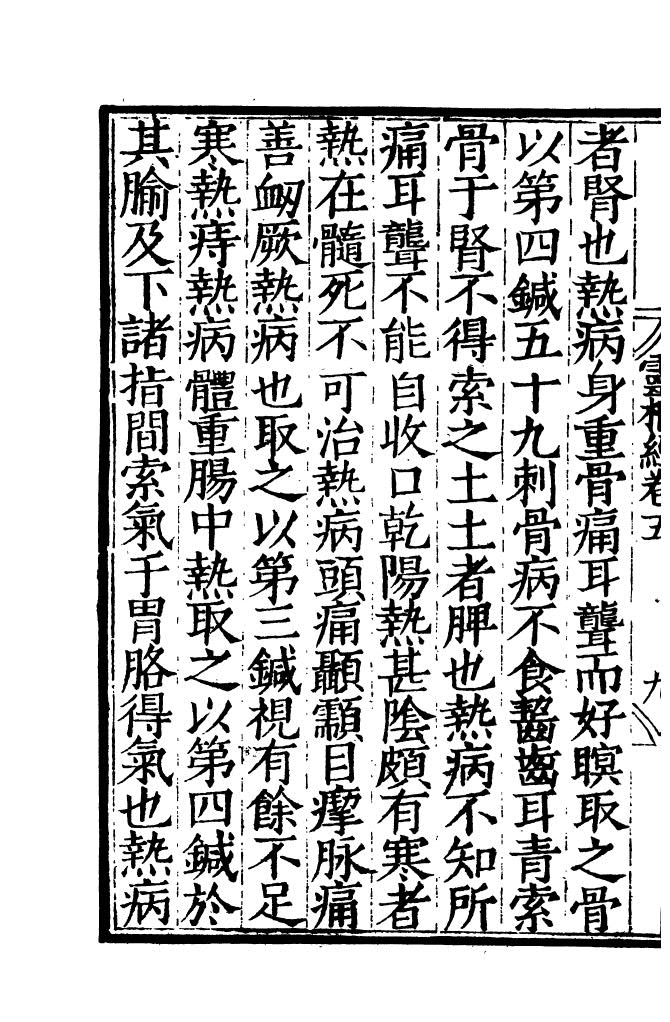 靈樞經卷五 九
者腎也熱病身重骨痛耳聾而好瞑取之骨
以第四鍼五十九刺骨病不食齧齒耳青索
骨于腎不得索之土土者脾也熱病不知所
痛耳聾不能自收口乾陽熱甚陰頗有寒者
熱在髓死不可治熱病頭痛顳顬目㾕脉痛
善衂厥熱病也取之以第三鍼視有餘不足
寒熱痔熱病體重腸中熱取之以第四鍼於
其腧及下諸指間索氣于胃胳得氣也熱病